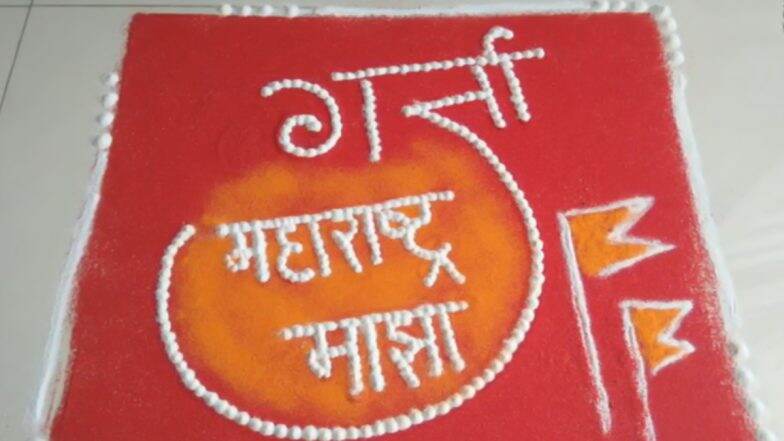 गर्जा
महाराष्ट्र
माझा